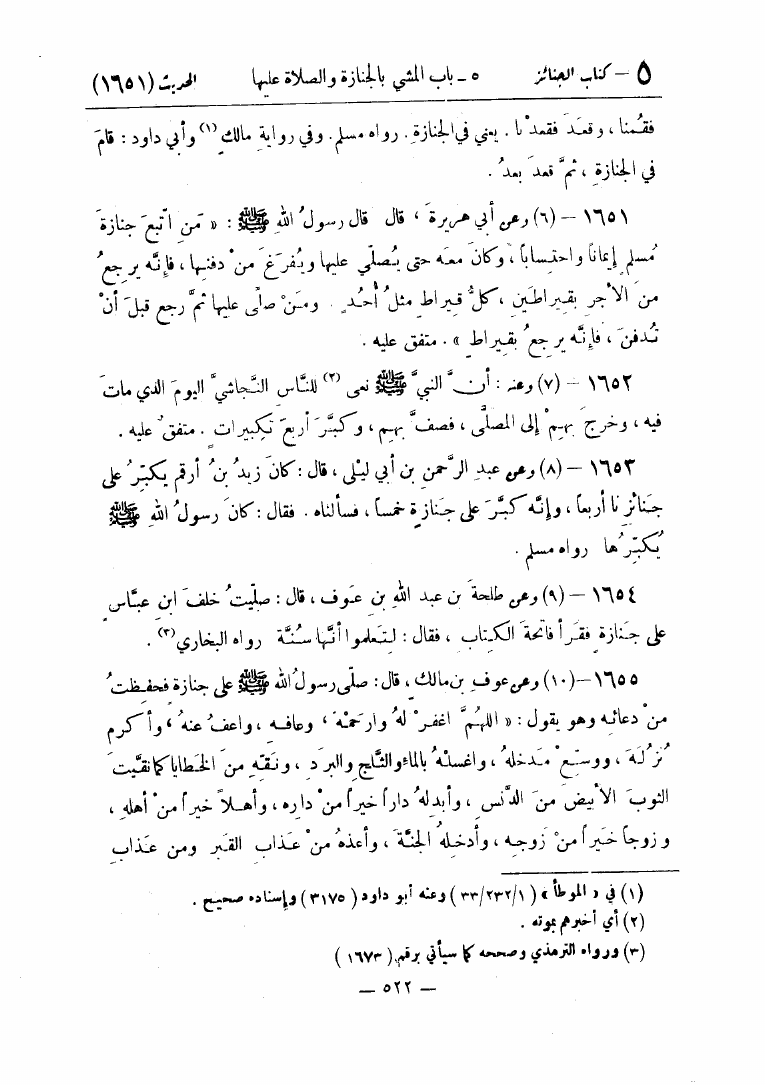 ٥ – كتاب الجنائز ٥ ـ باب المشي بالجنازة والصلاة عليها الحديث (١٦٥١)
فقُمنا ، وقعَدَ فقعدْنا . يعني في الجنازةِ . رواه مسلم . وفي روايةِ مالكٍ (١) وأبي داود : قامَ
في الجنازةِ ، ثمَّ قعدَ بعدُ .
١٦٥١ – (٦) وعن أبي هريرةَ ، قال قال رسولُ اللهِ ﷺ : « مَنِ اتَّبعَ جنازةَ
مُسلمٍ إيماناً واحتِساباً ، وكانَ معَه حتى يُصلَّي عليها ويُفرَغَ منْ دفنِها ، فإنَّه يرجعُ
منَ الأجرِ بقيراطَينِ ، كلُّ قيراطٍ مثلُ أُحُدٍ . ومَنْ صلَّى عليها ثمَّ رجع قبلَ أنْ
تُدفنَ ، فإنَّه يرجعُ بقيراطٍ » . متفق عليه .
١٦٥٢ – (٧) وعنه : أنَّ النبيَّ ﷺ نعى (٢) للنَّاس النَّجاشيَّ اليومَ الذي ماتَ
فيه ، وخرجَ بهِمْ إلى المصلَّى ، فصفَّ بهِم ، وكبَّرَ أربعَ تكبيرات . متفقٌ عليه .
١٦٥٣ – (٨) وعن عبدِ الرَّحمنِ بن أبي ليْلى ، قال : كانَ زيدُ بنُ أرقم يكبِّرُ على
جَنائزِنا أربعاً ، وإنَّه كبَّرَ على جَنازةٍ خمساً ، فسألناه . فقال : كانَ رسولُ اللهِ ﷺ
يُكبِّرُها رواه مسلم .
١٦٥٤ – (٩) وعن طلحةَ بن عبد اللهِ بنِ عَوف ، قال : صلَّيتُ خلفَ ابنِ عبَّاسٍ
على جَنازةٍ فقرَأ فاتحةَ الكِتابِ ، فقال : لِتَعلموا أنَّها سُنَّة رواه البخاري (٣) .
١٦٥٥ – (١٠) وعن عوفِ بنِ مالك ، قال : صلَّى رسولُ الله ﷺ على جنازةٍ فحفِظتُ
منْ دعائِه وهو يقول : « اللهُمَّ اغفرْ لهُ وارحَمْهُ ، وعافِه ، واعفُ عنهُ ، وأكرم
نُزُلَهُ ، ووسِّعْ مَدخلهُ ، واغسلْهُ بالماءِ والثَّلجِ والبرَدِ ، ونقِّهِ منَ الخَطايا كما نقَّيتَ
الثوبَ الأبيضَ منَ الدَّنسِ ، وأبدِلهُ داراً خيراً منْ داره ، وأهلاً خيراً منْ أهلهِ ،
وزوجاً خَيراً منْ زوجِه ، وأدخلهُ الجنَّةَ ، وأعذهُ منْ عَذابِ القَبرِ ومن عَذابِ
(١) في « الموطأ » (٣٣/٢٣٢/١) وعنه أبو داود (٣١٧٥) وإسناده صحيح .
(٢) أي أخبرهم بموته .
(٣) ورواه الترمذي وصححه كما سيأتي برقم (١٦٧٣)
– ٥٢٢ –